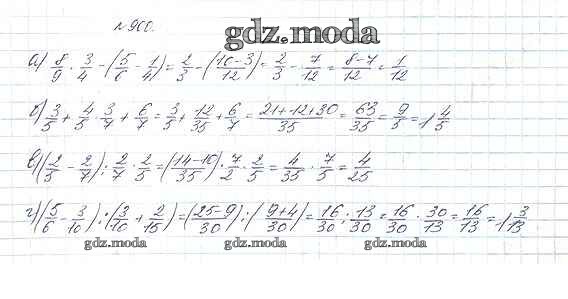 №900.
gdz.moda
а) 8/9 · 3/4 - (5/6 - 1/4) = 2/3 - (10-3/12) = 2/3 - 7/12 = 8-7/12 = 1/12
б) 3/5 + 4/5 · 3/7 + 6/7 = 3/5 + 12/35 + 6/7 = 21+12+30/35 = 63/35 = 9/5 = 1 4/5
в) (2/5 - 2/7) : 2/7 · 2/5 = (14-10/35) · 7/2 · 2/5 = 4/35 · 7/5 = 4/25
г) (5/6 - 3/10) : (3/10 + 2/15) = (25-9/30) : (9+4/30) = 16/30 : 13/30 = 16/30 · 30/13 = 16/13 = 1 3/13
gdz.moda gdz.moda gdz.moda